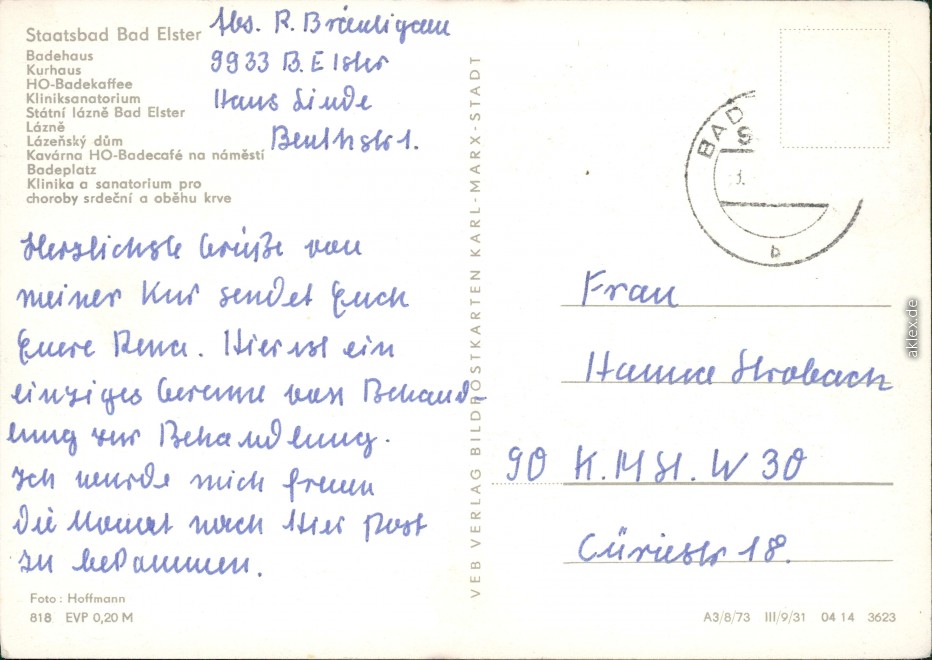 Staatsbad Bad Elster
Badehaus
Kurhaus
HO-Badekaffee
Kliniksanatorium
Státní lázně Bad Elster
Lázně
Lázeňský dům
Kavárna HO-Badecafé na náměstí
Badeplatz
Klinika a sanatorium pro
choroby srdeční a oběhu krve
Abs. R. Bräutigam
9933 B. Elster
Haus Linde
Beuthstr 1.
Herzlichste Grüße von
meiner Kur sendet Euch
Euere Rena. Hier ist ein
einziges Gerenne von Behand-
lung zur Behandlung.
Ich wurde mich freuen
die Monat noch Hier Post
zu bekommen.
Foto: Hoffmann
818 EVP 0,20 M
VEB VERLAG BILDPOSTKARTEN KARL-MARX-STADT
BAD
S
b
Frau
Hanna Strobach
90 K.M.St. W 30
Cüriestr 18.
A3/8/73 III/9/31 04 14 3623
aklex.de